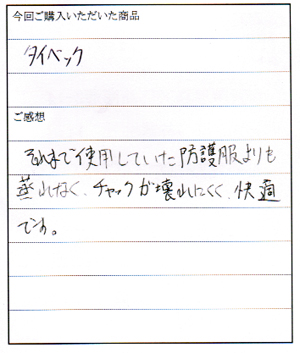 今回ご購入いただいた商品
タイベック
ご感想
それまで使用していた防護服よりも
蒸れなく、チャックが壊れにくく、快適
です。